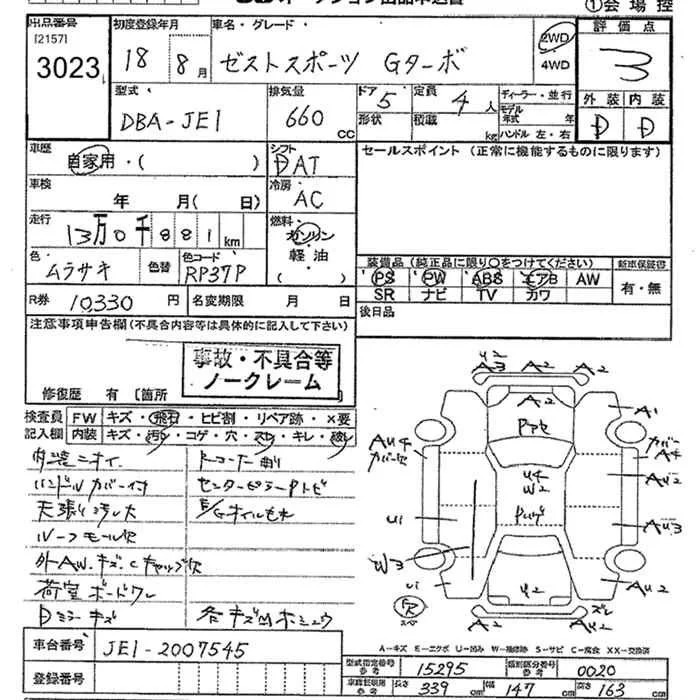 ①会場控
出品番号
[2157]
3023
初度登録年月
18 8月
車名・グレード
ゼストスポーツ Gターボ
2WD
4WD
評価点
3
外装 内装
D D
型式
DBA-JE1
排気量
660 CC
ドア 5
形状
定員 4人
積載 kg
ディーラー・並行
モデル年式 年
ハンドル 左・右
車歴
自家用・( )
シフト
DAT
セールスポイント (正常に機能するものに限ります)
車検
年 月( 日)
冷房
AC
走行
13万0千881km
燃料
ガソリン
軽油
色
ムラサキ
色替
色コード
RP37P
装備品(純正品に限り○をつけてください)
新車保証書
PS PW ABS エアB AW
SR ナビ TV カワ
有・無
R券 10330円
名変期限 月 日
後日品
注意事項申告欄(不具合内容等は具体的に記入して下さい)
事故・不具合等
ノークレーム
修復歴 有 [箇所 ]
検査員
記入欄
FW キズ・飛石・ヒビ割・リペア跡・×要
内装 キズ・汚れ・コゲ・穴・スレ・キレ・破レ
内装ニオイ
ハンドルカバー付
天張り汚れ大
ルーフモール欠
外AW.キズ.Cキャップ欠
荷室ボードワレ
Dミラーキズ
センターピラーPトビ
E/Gオイルもれ
A2
A3
A2
A2
A2
A1
Au4
カバー欠
カバー
A4
Au2
U4
W2
U1
Au3
W3
U1
U2
Au2
A2
A2
ズレ
A-キズ E-エクボ U-凹み W-補修跡 S-サビ C-腐食 XX-交換済
車台番号
JE1-2007545
登録番号
型式指定番号 参考 15295
類別区分番号 参考 0020
車庫証明用 参考 長さ 339cm 幅 147cm 高さ 163cm